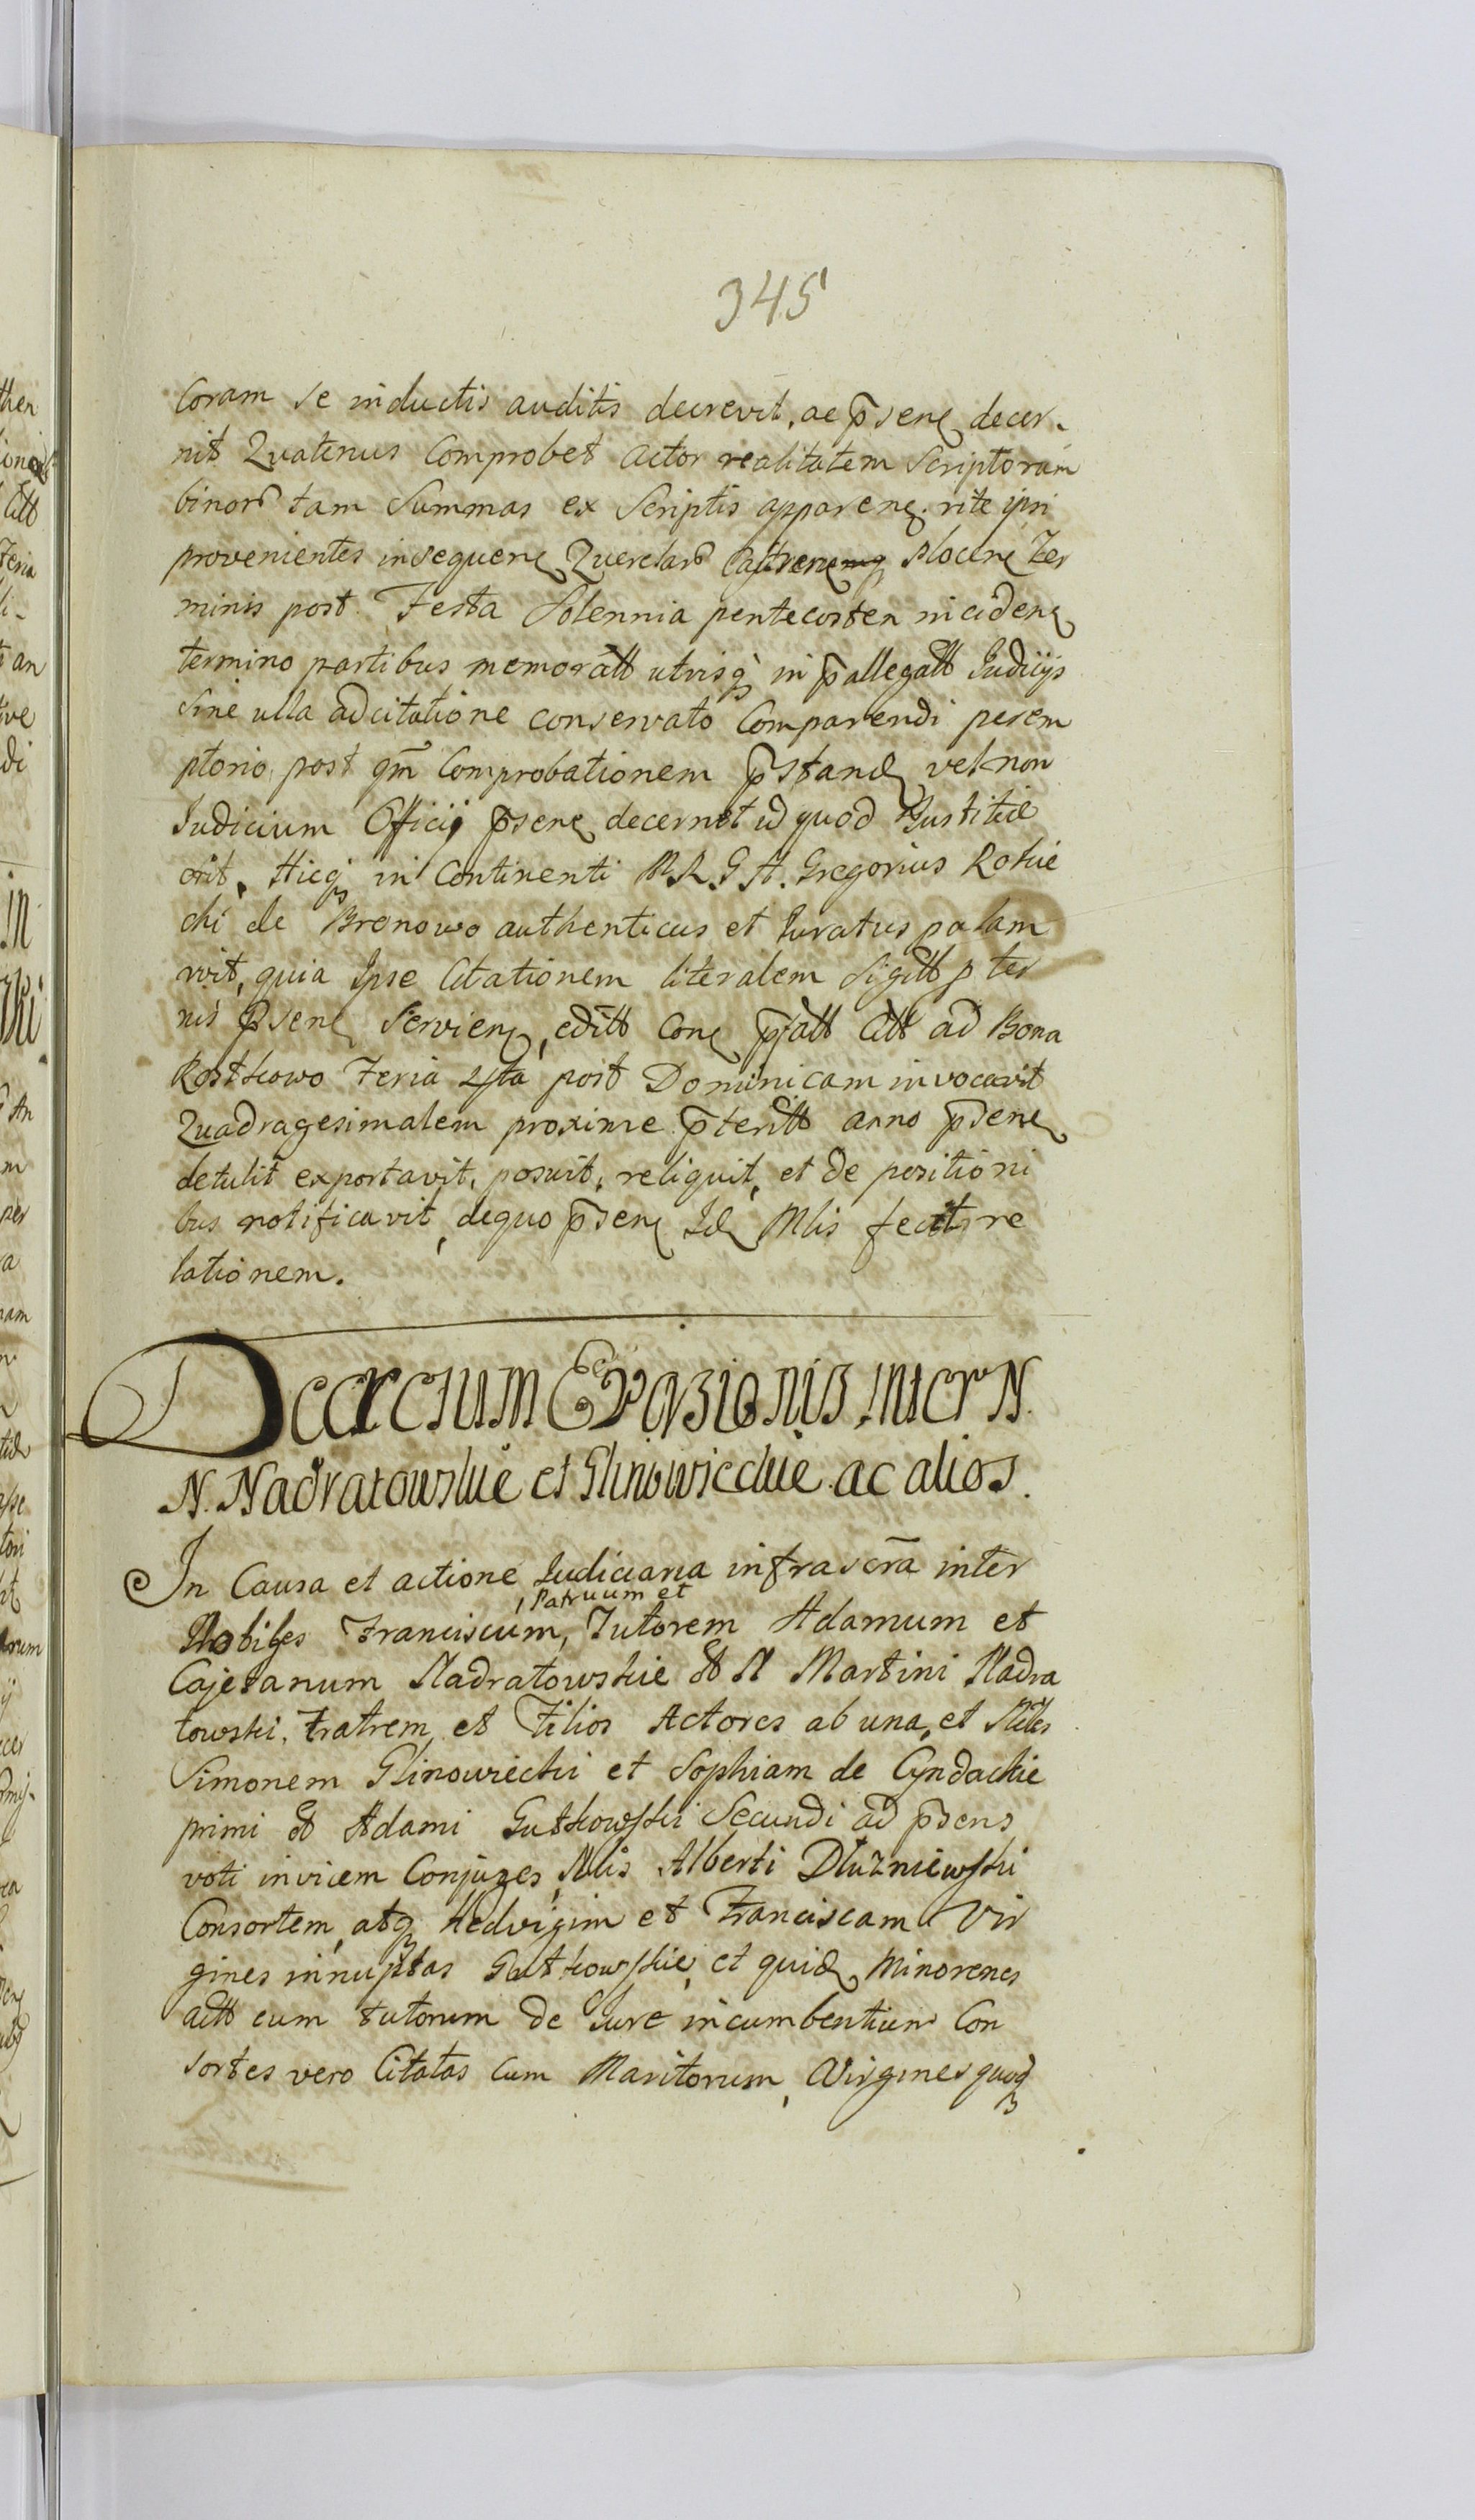 345
Coram se inductis auditis decrevit, ac p̄senς decer-
nit Quatenus Comprobet actor realitatem Scriptoram
binord tam Summas ex Scriptis apparenς rite ipsi
provenientes insequenς Querelard Castrenς Plocenς Ter
minis post Festa Solennia pentecosten incidenς
termino partibus memoratt utrisq in p̄allegatt Judicijs
sine ulla adcitatione conservato Comparendi perem
ptorio, post qm̄ Comprobationem p̄standς vel non
Judicium Officij p̄senς decernet id quod Justitiæ
erit. Hicq in Continenti M. R. G. H. Gregorius Rokic
cki de Bronowo authenticus et Juratus palam
vit, quia Ipse Citationem literalem Sigitt p ter
nis p̄senς Servienς, editt Conς p̄fatt Citt ad Bona
Rostkowo Feria 4ta post Dominicam invocavit
Quadragesimalem proxime p̄teritt anno p̄senς
detulit exportavit, posuit, reliquit, et de positioni
bus notificavit, dequo p̄senς Idς Mlis fecit re
lationem.
Decretum Evasionis inter N.
N. Nadratowskie et Glinowieckie ac alios.
In Causa et actione Judiciaria infrascr̄a inter
, Patruum et
Nobiles Franciscum, Tutorem Adamum et
Cajetanum Nadratowskie & N Martini Nadra
towski, Fratrem et Filios Actores ab una, et Nbiles
Simonem Glinowiecki et Sophiam de Cyndackie
primi & Adami Gutkowski Secundi ad p̄sens
voti invicem Conjuges, Nlis Alberti Dłuzniewski
Consortem, atq Hedvigim et Franciscam Vir
gines innuptas Gutkowskie, et quidς Minorenes
actt cum tutorum de Jure incumbentium Con
sortes vero Citatas Cum Maritorum, Virgines quoq